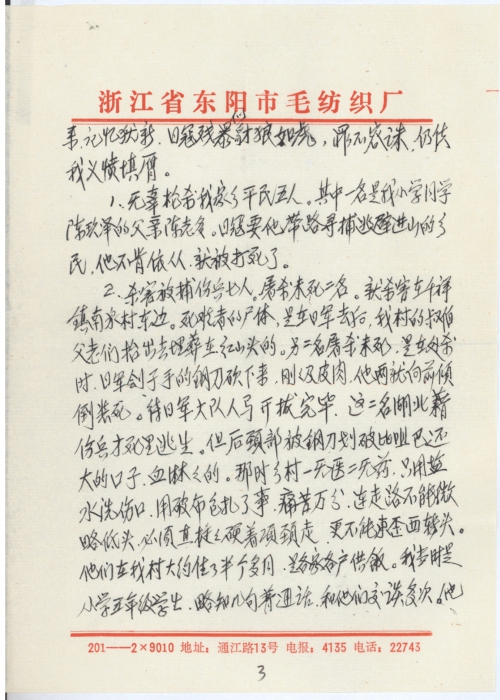 浙江省东阳市毛纺织厂
来,记忆犹新,日寇残暴豺狼如虎,罪不容诛,仍使
我义愤填膺。
1.无辜枪杀我家乡平民五人。其中一名是我小学同学
陈玖泽的父亲陈老多。日寇要他带路寻捕逃避进山的乡
民,他不肯依从,就被打死了。
2.杀害被捕伤兵七人。屠杀未死二名。就杀害在千祥
镇南岑村东边。死难者的尸体,是在日军去后,我村的叔伯
父老们抬出去埋葬在红山头的。另二名屠杀未死,是在砍杀
时,日军刽子手的钢刀砍下来,刚及皮肉,他两就向前倾
倒装死。待日军大队人马开拔完毕,这二名湖北籍
伤兵才死里逃生。但后颈部被钢刀划破比嘴巴还
大的口子,血淋淋的。那时乡村一无医二无药,只用盐
水洗伤口,用破布包扎了事,痛苦万分,连走路不能做
略低头,必须直挺挺硬着项颈走,更不能东歪西转头。
他们在我村大约住了半个多月,是各家各户供饭。我当时是
小学五年级学生,略知几句普通话,和他们交谈多次。他
201——2×9010 地址:通江路13号 电报:4135 电话:22743
3